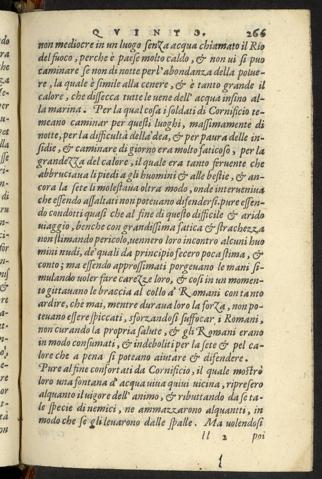 QVINTO. 266
non mediocre in un luogo senza acqua chiamato il Rio
del fuoco, perche è paese molto caldo, & non ui si puo
caminare se non di notte per l'abondanza della poluе-
re, la quale è simile alla cenere, & è tanto grande il
calore, che dissecca tutte le uene dell' acqua insino al-
la marina. Per la qual cosa i soldati di Cornificio te-
meano caminar per questi luoghi, massimamente di
notte, per la difficultà della dea, & per paura delle in-
sidie, & caminare di giorno era molto faticoso, per la
grandezza del calore, il quale era tanto feruente che
abbruciaua li piedi a gli huomini & alle bestie, & an-
cora la sete li molestaua oltra modo, onde interueniua
che essendo assaltati non poteuano difendersi. pure essen-
do condotti quasi che al fine di questo difficile & arido
uiaggio, benche con grandissima fatica & strachezza
non stimando pericolo, uennero loro incontro alcuni huo
mini nudi, de' quali da principio fecero poca stima, &
conto; ma essendo approssimati porgeuano le mani si-
mulando uoler fare carezze loro, & cosi in un momen-
to gittauano le braccia al collo a' Romani con tanto
ardire, che mai, mentre duraua loro la forza, non po-
teuano essere spiccati, sforzandosi suffocar i Romani,
non curando la propria salute, & gli Romani erano
in modo consumati, & indeboliti per la sete & pel ca-
lore che a pena si poteano aiutare & difendere.
Pure al fine confortati da Cornificio, il quale mostrò
loro una fontana d'acqua uiua quiui uicina, ripresero
alquanto il uigore dell' animo, & ributtando da se ta-
le specie di nemici, ne ammazzarono alquanti, in
modo che se gli leuarono dalle spalle. Ma uolendosi
ll 2 poi